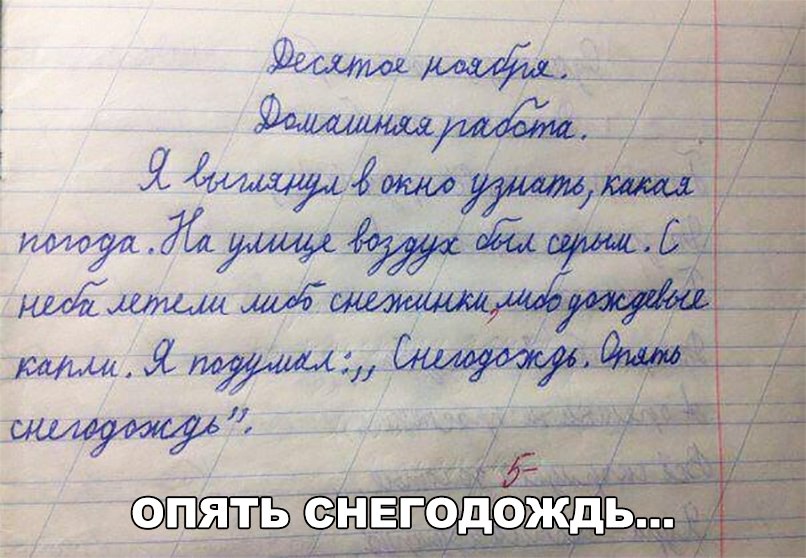 Десятое ноября.
Домашняя работа.
Я выглянул в окно узнать, какая
погода. На улице воздух был серым. С
неба летели либо снежинки, либо дождевые
капли. Я подумал: ,, Снегодождь. Опять
снегодождь”.
5-
ОПЯТЬ СНЕГОДОЖДЬ...